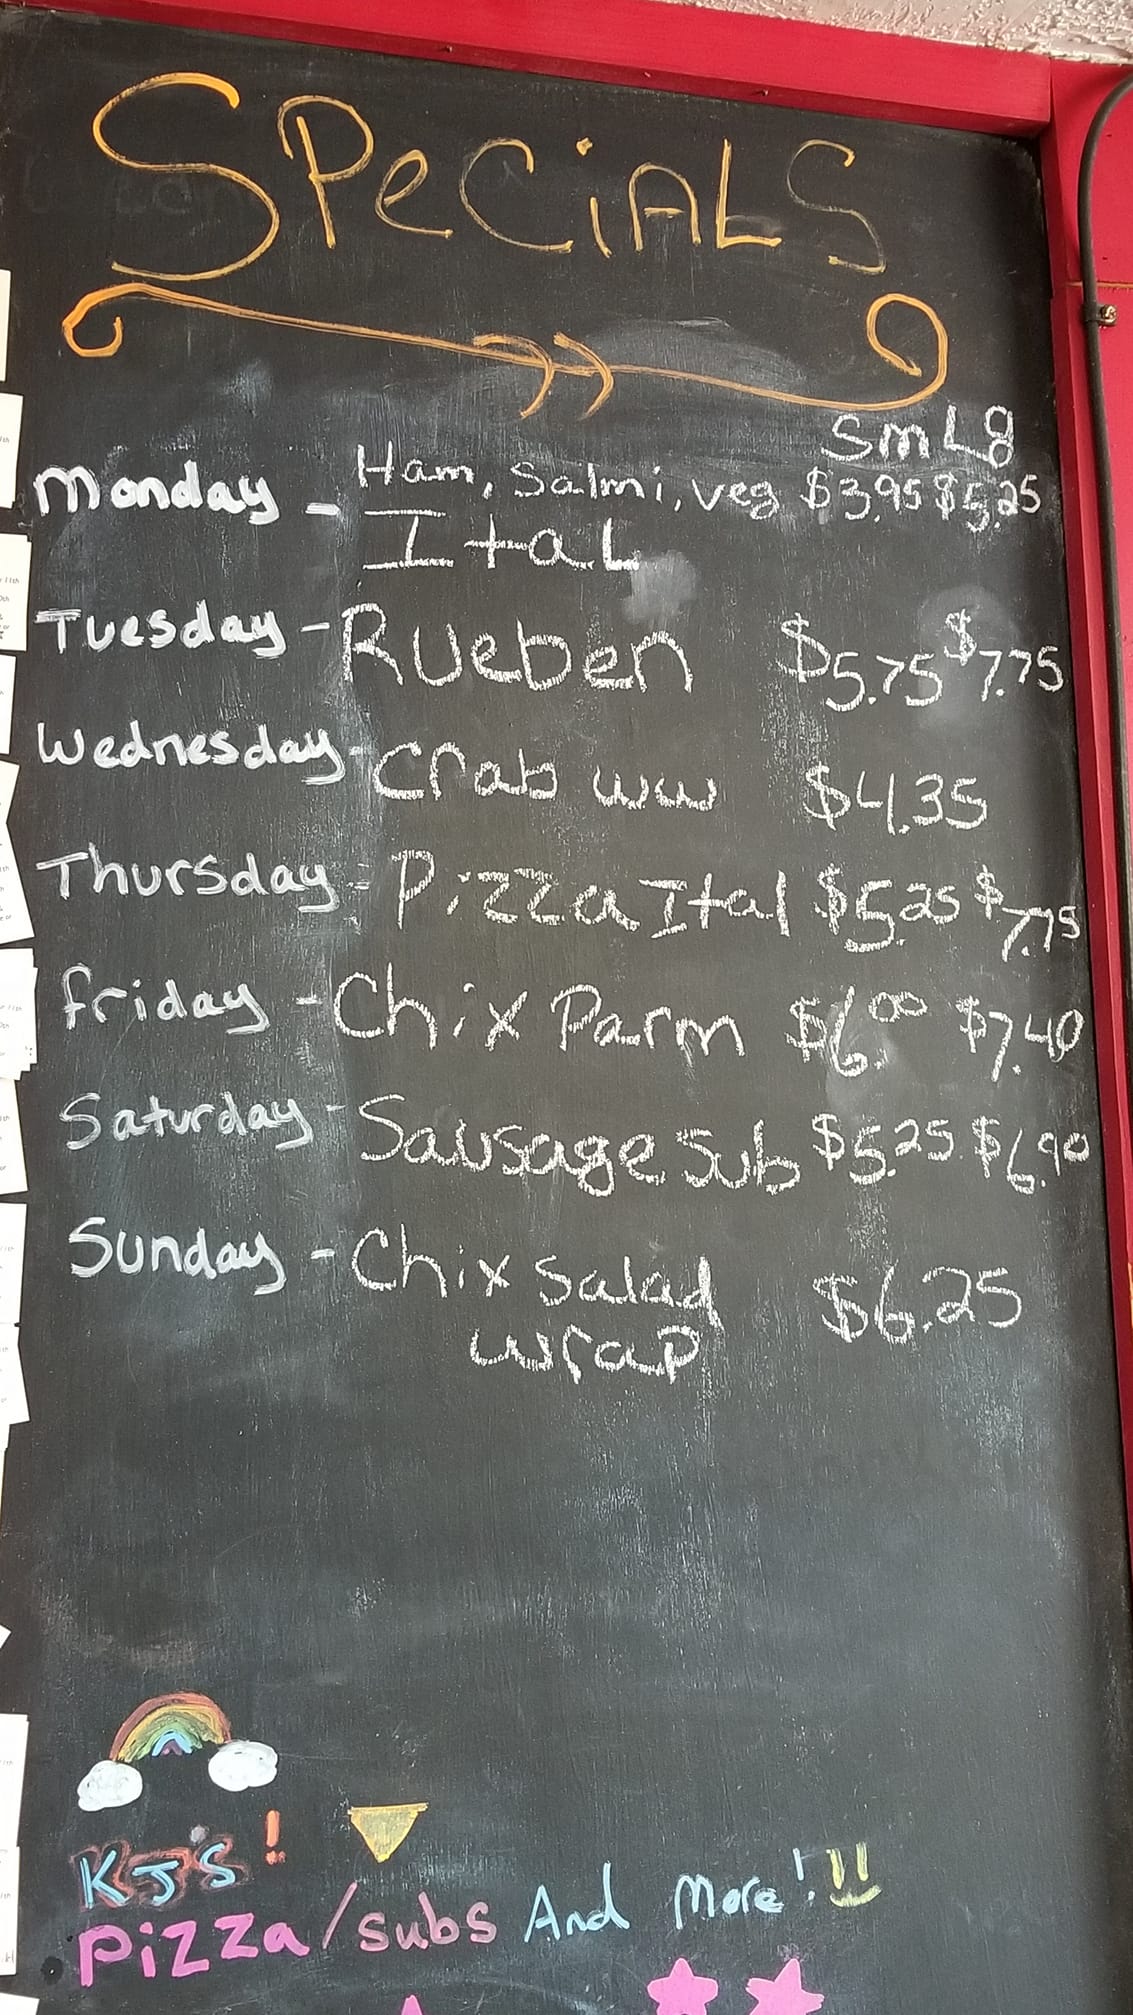 SPeCiALS
Sm Lg
Monday - Ham, Salmi, veg $3.95 $5.25
ItaL
Tuesday - Rueben $5.75 $7.75
Wednesday - Crab ww $4.35
Thursday - Pizza Ital $5.25 $7.75
friday - Chix Parm $6.00 $7.40
Saturday - Sausage Sub $5.25 $6.90
Sunday - Chix Salad $6.25
wrap
KJ'S!
Pizza/subs And More!